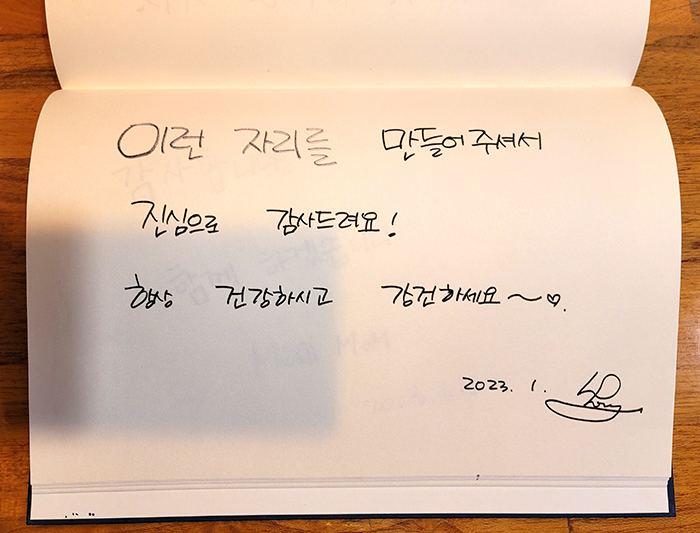 이런 자리를 만들어주셔서
진심으로 감사드려요!
항상 건강하시고 강건하세요~♡.
2023. 1.